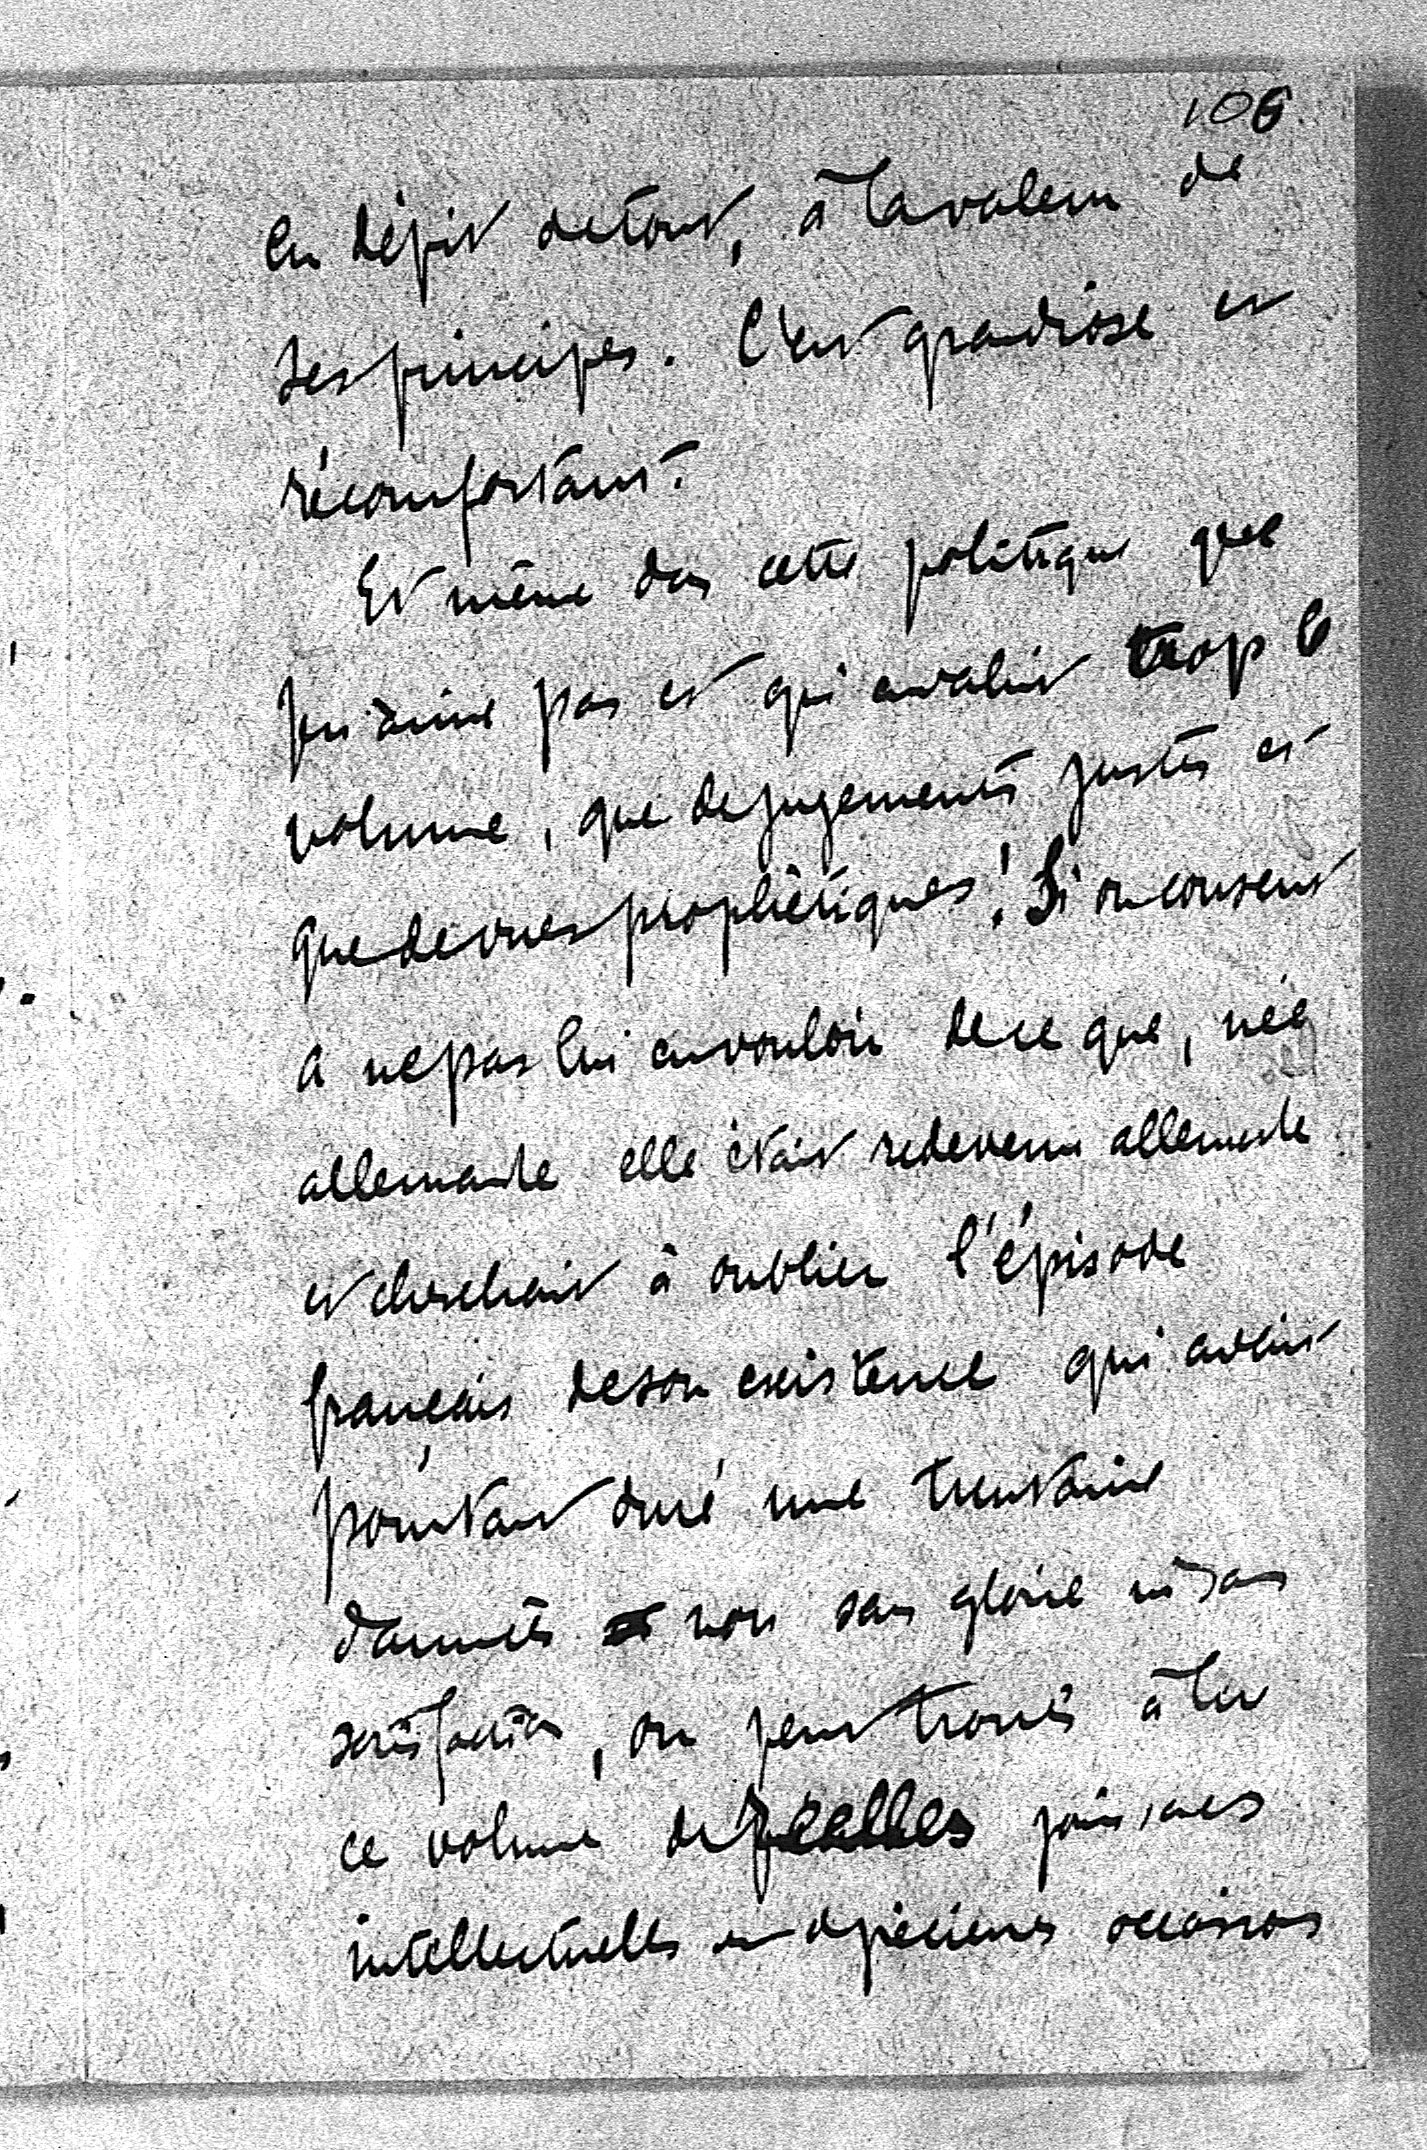 106
en dépit de tout, à la valeur de
ses principes. C'est grandiose et
réconfortant.
Et même dans cette politique que
je n'aime pas et qui envahit trop le
volume, que de jugements justes et
que de vues prophétiques ! Si on consent
à ne pas lui en vouloir de ce que, née
allemande elle était redevenue allemande
et cherchait à oublier l'épisode
français de son existence qui avait
pourtant duré une trentaine
d'années non sans gloire ni sans
satisfaction, on peut trouver à lire
ce volume de réelles jouissances
intellectuelles et de précieuses occasions